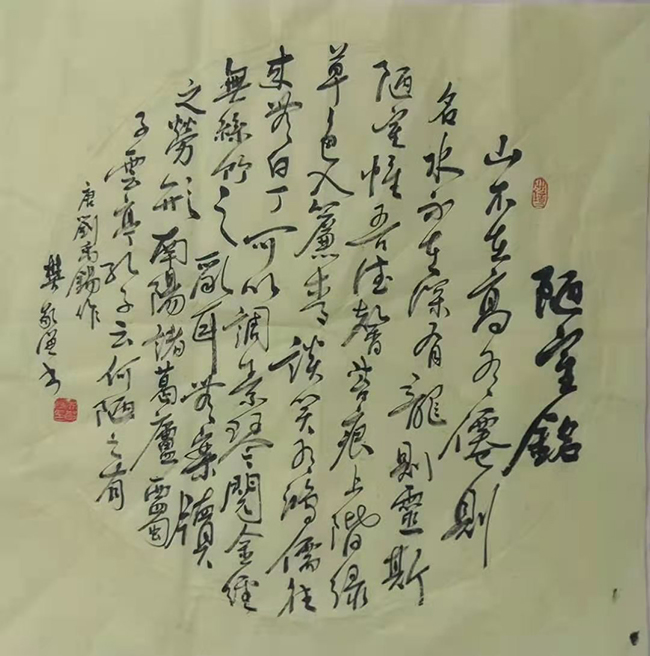 陋室銘
山不在高有僊則
名水不在深有龍則靈斯
陋室惟吾德馨苔痕上階緑
草色入簾青談笑有鴻儒往
来無白丁可以調素琴閲金經
無絲竹之亂耳無案牘
之勞形南陽諸葛廬西蜀
子雲亭孔子云何陋之有
唐劉禹錫作
樊敬书